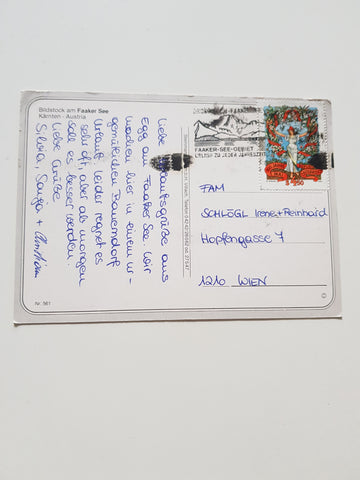 Bildstock am Faaker See
Kärnten - Austria
Liebe Urlaubsgrüße aus
Egg am Faaker See. Wir
machen hier in einem ur-
gemütlichen Bauerndorf
Urlaub. Leider regnet es
sehr oft, aber ab morgen
soll es besser werden.
Liebe Grüße
Silvia, +
Nr. 561
FAAKER-SEE-GEBIET
ERLEBNIS ZU JEDER JAHRESZEIT
FAM
SCHLÖGL Irene+Reinhard
Hopfengasse 7
1210 WIEN